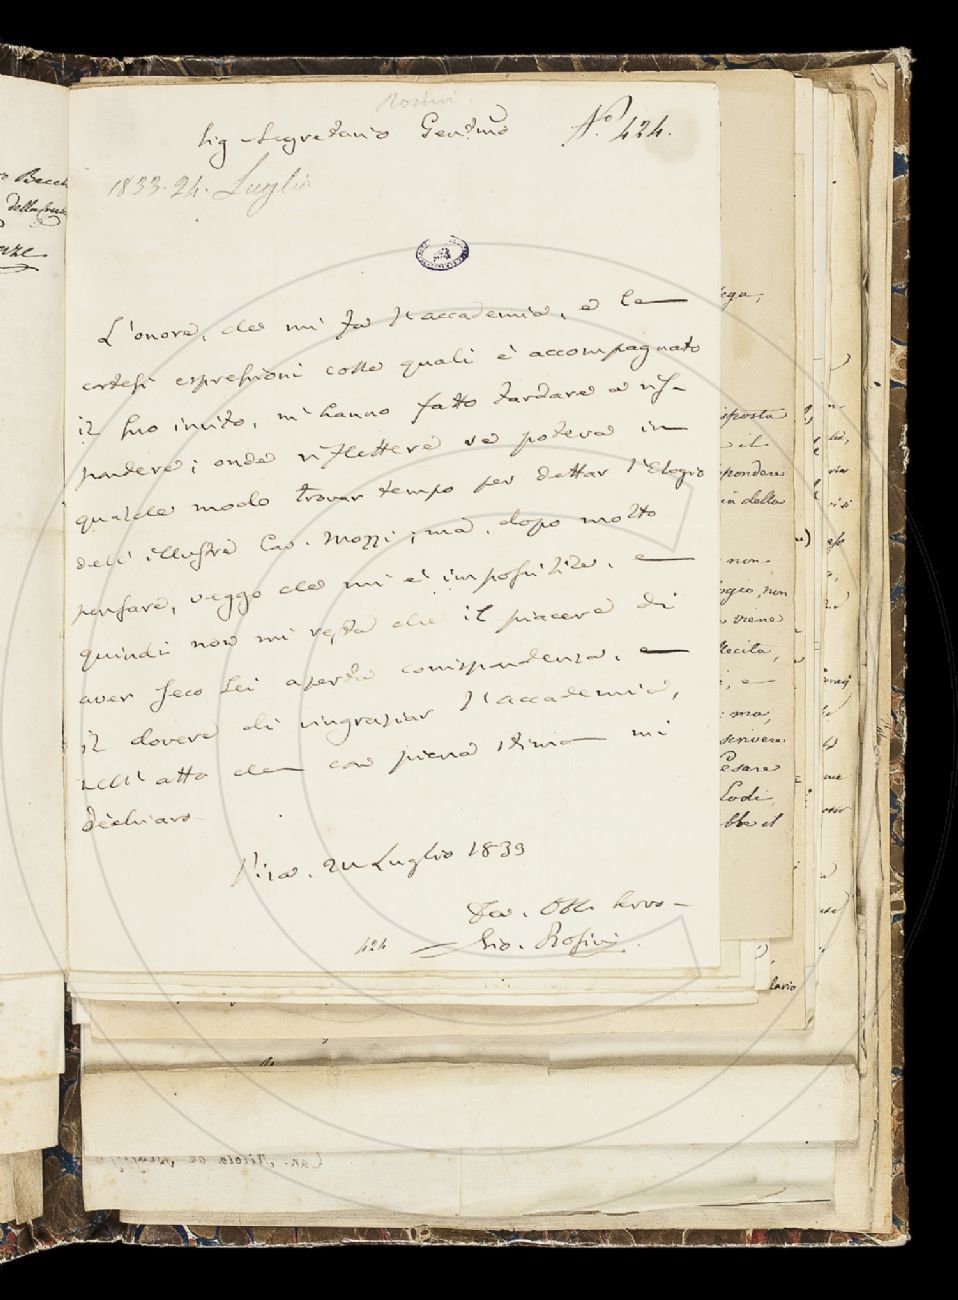 Rosini
Sig. Segretario Gentmo
No. 424.
1833. 24. Luglio
L'onore, che mi fa l'accademia, e le
cortesi espressioni colle quali è accompagnato
il suo invito, mi hanno fatto tardare a ris-
pondere; onde riflettere se poteva in
qualche modo trovar tempo per dettar l'Elogio
dell'illustre Cav. Mozzi; ma, dopo molto
pensare, veggo che mi è impossibile. e
quindi non mi resta che il piacere di
aver seco Lei aperta corrispondenza, e
il dovere di ringraziar l'accademia,
nell'atto che con piena stima mi
dichiaro
Pisa. 24 Luglio 1833
Dev. Obb. servo
Gio. Rosini
424
o Becch
della
isposta
e il
spondere
ia della
non
ogio, non
viene
ma,
scrivere
Cesare
Lodi,
bbe il
lario